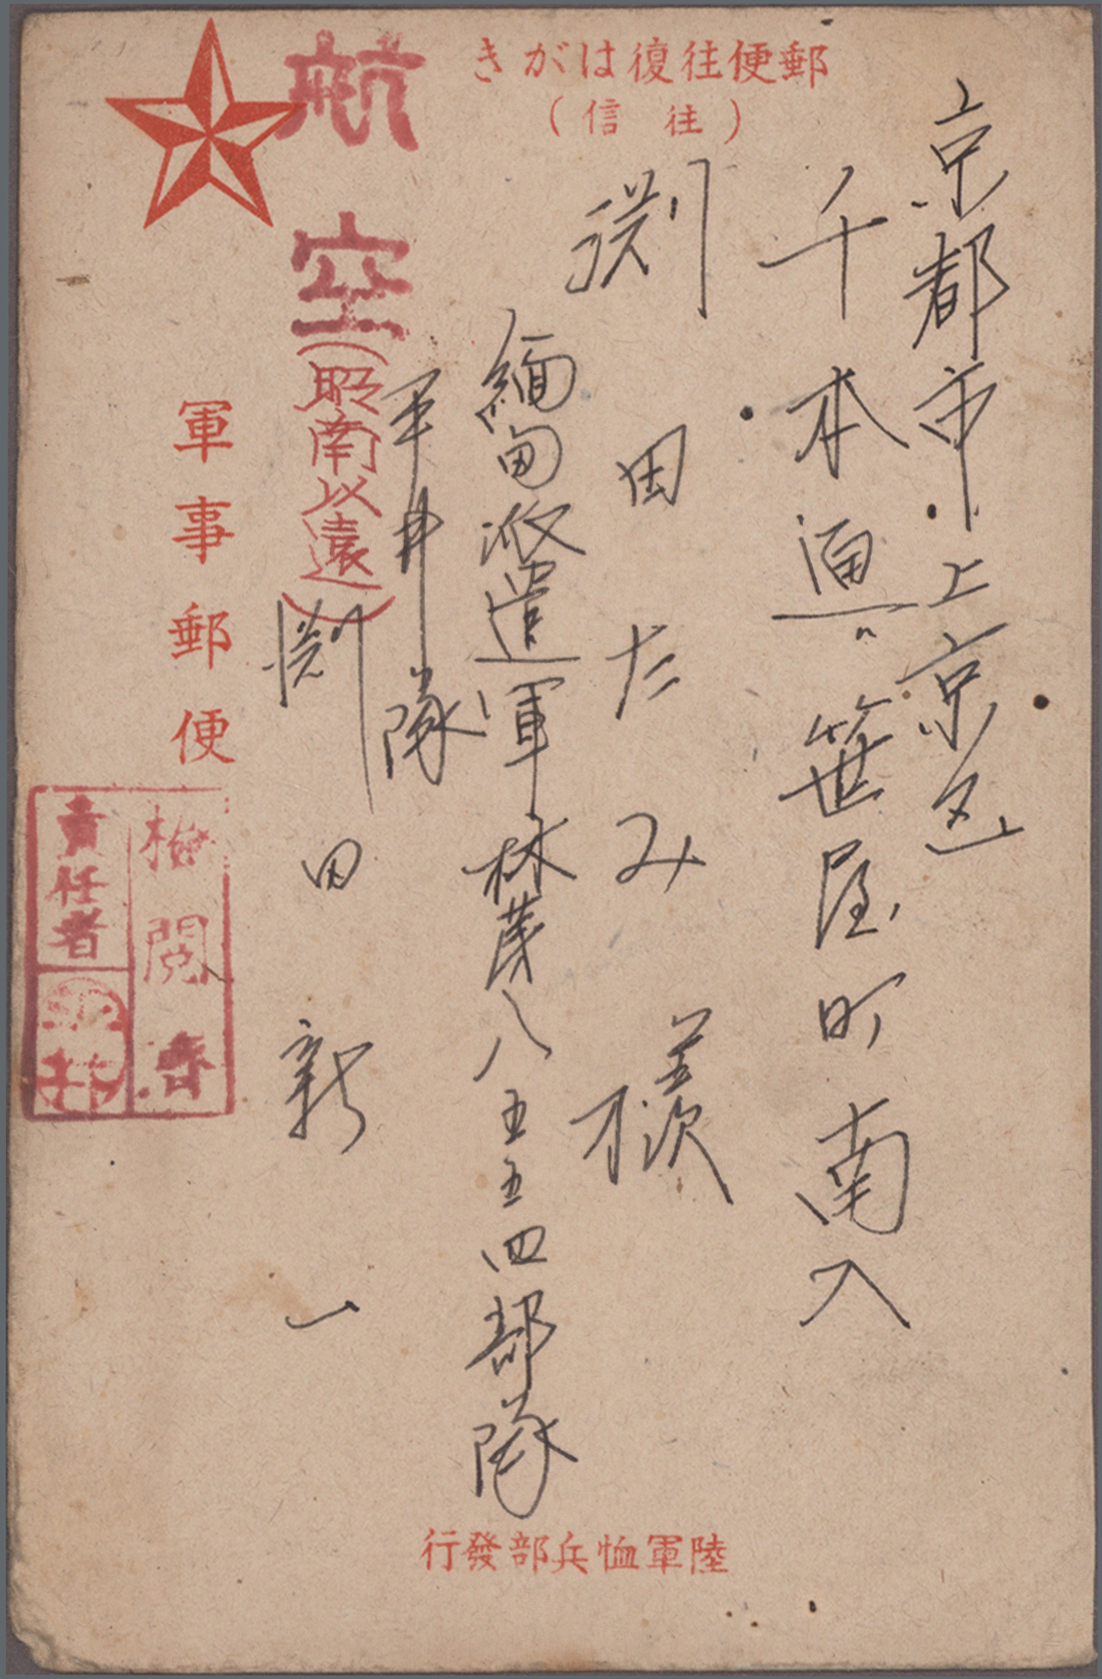 郵便往復はがき
(往信)
京都市上京区
千本通笹屋町南入
渕田たみ様
緬甸派遣軍林第八五五四部隊
軍井隊
渕田新一
航空
(昭南以遠)
軍事郵便
検閲済
責任者
陸軍恤兵部發行